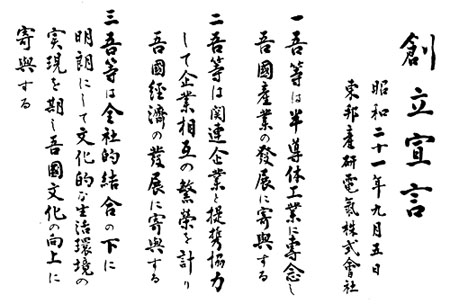 創立宣言
昭和二十一年九月五日
東邦産研電気株式會社
一吾等は半導体工業に専念し
吾國産業の發展に寄與する
二吾等は関連企業と提携協力
して企業相互の繁榮を計り
吾國經濟の發展に寄與する
三吾等は全社的結合の下に
明朗にして文化的な生活環境の
実現を期し吾國文化の向上に
寄與する